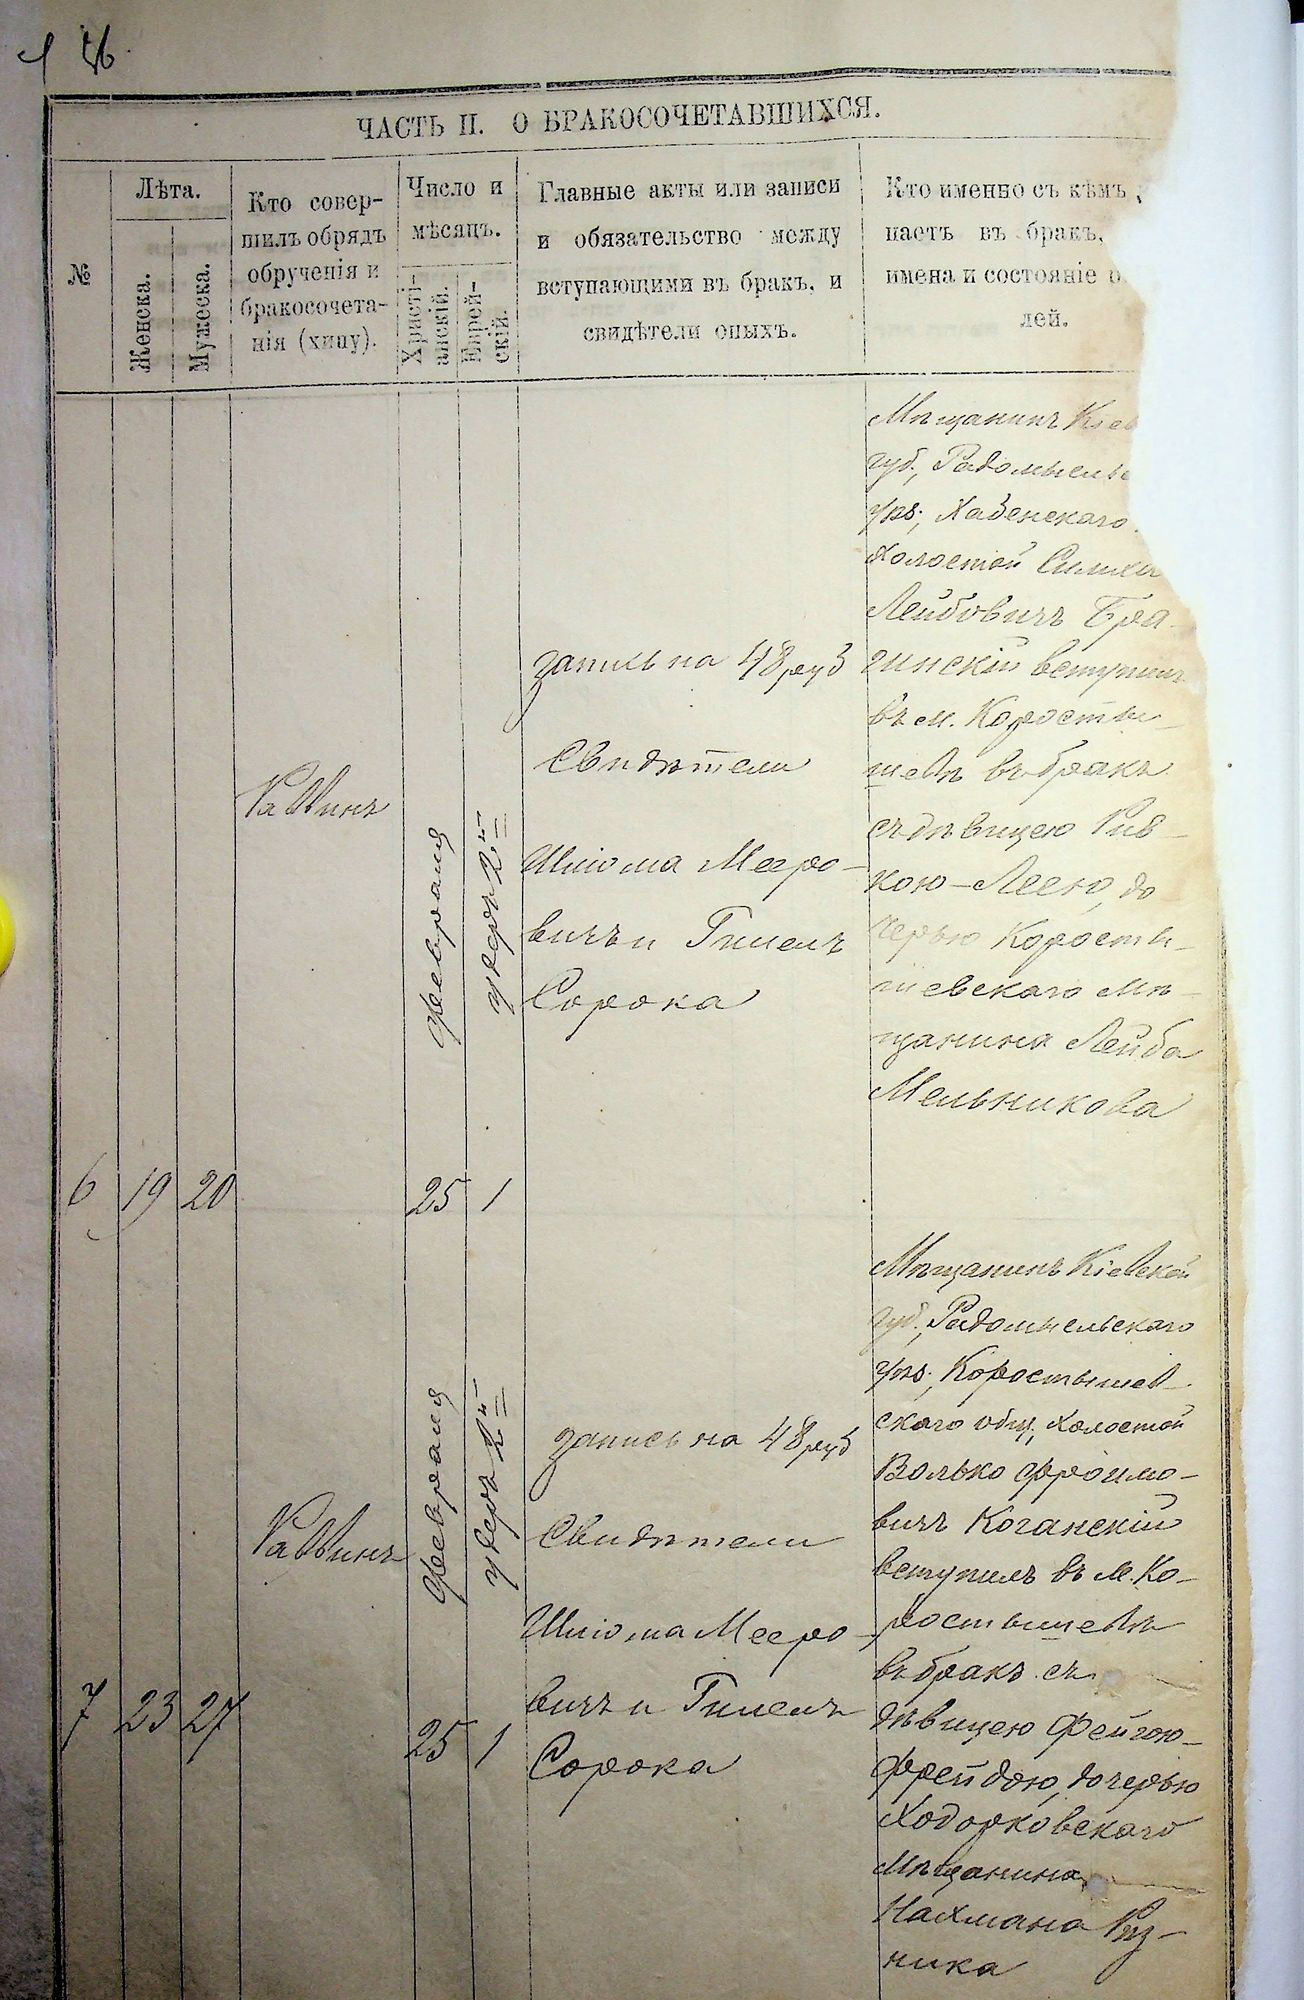 ЧАСТЬ II. О БРАКОСОЧЕТАВШИХСЯ.
№
Лѣта.
Женска.
Мужеска.
Кто совер-
шилъ обрядъ
обрученія и
бракосочета-
нія (хипу).
Число и
мѣсяцъ.
Христі-
анскій.
Еврей-
скій.
Главные акты или записи
и обязательство между
вступающими въ бракъ, и
свидѣтели оныхъ.
Кто именно съ кѣмъ
паетъ въ бракъ,
имена и состояніе
лей.
6
19
20
Раввинъ
Февраля
25
удеръ 2й
1
запись на 48 руб
Свидѣтели
Шлiома Мееро-
вичъ и Гилелъ
Сорока
Мѣщанинъ Кіев
губ., Радомысль
уѣз., Хабенскаго
холостой Симха
Лейбовичъ Бра-
гинскій вступилъ
въ м. Коросты-
шевѣ въ бракъ
съ дѣвицею Рив-
кою-Леею, до
черью Корости-
шевскаго мѣ-
щанина Лейба
Мельникова
7
23
27
Раввинъ
Февраля
25
удеръ 2й
1
запись на 48 руб
Свидѣтели
Шлiома Мееро-
вичъ и Гилелъ
Сорока
Мѣщанинъ Кіевской
губ., Радомысльскаго
уѣз., Коростышев-
скаго общ., холостой
Волько Фроимо-
вичъ Коганскій
вступилъ въ м. Ко-
ростышевѣ
въ бракъ съ
дѣвицею Фейгою-
Фрейдою, дочерью
Ходорковскаго
мѣщанина
Нахмана Рѣз-
ника